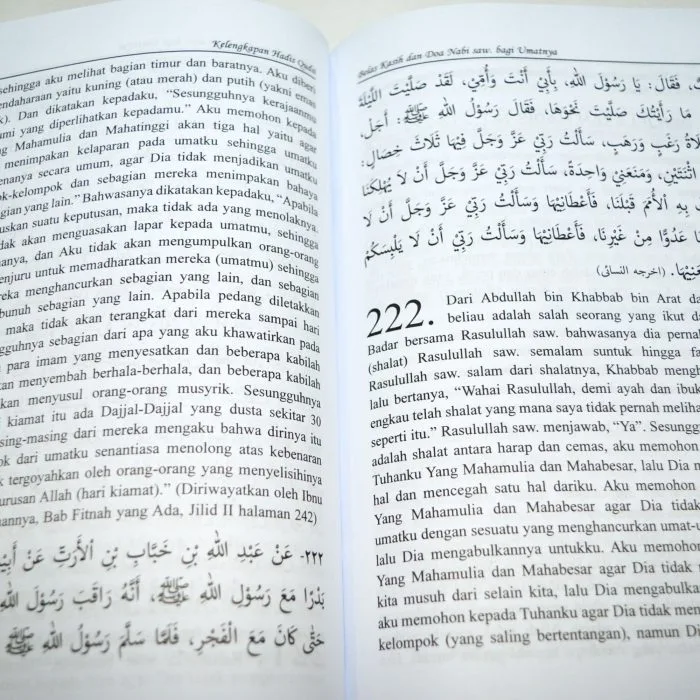 Kelengkapan Hadis Qudsi
sehingga aku melihat bagian timur dan baratnya. Aku diberi
endaharaan yaitu kuning (atau merah) dan putih (yakni emas
k). Dan dikatakan kepadaku, “Sesungguhnya kerajaanmu
umi yang diperlihatkan kepadamu.” Aku memohon kepada
ng Mahamulia dan Mahatinggi akan tiga hal yaitu agar
menimpakan kelaparan pada umatku sehingga umatku
enanya secara umum, agar Dia tidak menjadikan umatku
ok-kelompok dan sebagian mereka menimpakan bahaya
agian yang lain.” Bahwasanya dikatakan kepadaku, “Apabila
uskan suatu keputusan, maka tidak ada yang menolaknya.
dak akan menguasakan lapar kepada umatmu, sehingga
anya, dan Aku tidak akan mengumpulkan orang-orang
enjuru untuk memadharatkan mereka (umatmu) sehingga
reka menghancurkan sebagian yang lain, dan sebagian
bunuh sebagian yang lain. Apabila pedang diletakkan
maka tidak akan terangkat dari mereka sampai hari
gguhnya sebagian dari apa yang aku khawatirkan pada
para imam yang menyesatkan dan beberapa kabilah
kan menyembah berhala-berhala, dan beberapa kabilah
kan menyusul orang-orang musyrik. Sesungguhnya
kiamat itu ada Dajjal-Dajjal yang dusta sekitar 30
sing-masing dari mereka mengaku bahwa dirinya itu
ok dari umatku senantiasa menolong atas kebenaran
k tergoyahkan oleh orang-orang yang menyelisihinya
urusan Allah (hari kiamat).” (Diriwayatkan oleh Ibnu
nannya, Bab Fitnah yang Ada, Jilid II halaman 242)
٢٢٢- عَنْ عَبْدِ اللهِ بْنِ خَبَّابِ بْنِ الْأَرَتِّ عَنْ أَبِيْ
بَدْرًا مَعَ رَسُوْلِ اللهِ ﷺ، أَنَّهُ رَاقَبَ رَسُوْلَ اللهِ
حَتَّى كَانَ مَعَ الْفَجْرِ، فَلَمَّا سَلَّمَ رَسُوْلُ اللهِ ﷺ
Belas Kasih dan Doa Nabi saw. bagi Umatnya
فَقَالَ: يَا رَسُوْلَ اللهِ، بِأَبِيْ أَنْتَ وَأُمِّيْ، لَقَدْ صَلَّيْتَ اللَّيْلَةَ
مَا رَأَيْتُكَ صَلَّيْتَ نَحْوَهَا، فَقَالَ رَسُوْلُ اللهِ ﷺ: أَجَلْ،
لَاةُ رَغَبٍ وَرَهَبٍ، سَأَلْتُ رَبِّيْ عَزَّ وَجَلَّ فِيْهَا ثَلَاثَ خِصَالٍ:
اثْنَتَيْنِ، وَمَنَعَنِيْ وَاحِدَةً، سَأَلْتُ رَبِّيْ عَزَّ وَجَلَّ أَنْ لَا يُهْلِكَنَا
بِهِ الْأُمَمَ قَبْلَنَا، فَأَعْطَانِيْهَا وَسَأَلْتُ رَبِّيْ عَزَّ وَجَلَّ أَنْ لَا
عَدُوًّا مِنْ غَيْرِنَا، فَأَعْطَانِيْهَا وَسَأَلْتُ رَبِّيْ أَنْ لَا يَلْبِسَكُمْ
نَعَنِيْهَا. (اخرجه النسائي)
222. Dari Abdullah bin Khabbab bin Arat da
beliau adalah salah seorang yang ikut da
Badar bersama Rasulullah saw. bahwasanya dia pernah
(shalat) Rasulullah saw. semalam suntuk hingga fa
Rasulullah saw. salam dari shalatnya, Khabbab mengh
lalu bertanya, “Wahai Rasulullah, demi ayah dan ibuk
engkau telah shalat yang mana saya tidak pernah melih
seperti itu.” Rasulullah saw. menjawab, “Ya”. Sesungg
adalah shalat antara harap dan cemas, aku memoho
Tuhanku Yang Mahamulia dan Mahabesar, lalu Dia m
hal dan mencegah satu hal dariku. Aku memohon
Yang Mahamulia dan Mahabesar agar Dia tidak
umatku dengan sesuatu yang menghancurkan umat-u
lalu Dia mengabulkannya untukku. Aku memohon
Yang Mahamulia dan Mahabesar agar Dia tidak m
kita musuh dari selain kita, lalu Dia mengabulka
aku memohon kepada Tuhanku agar Dia tidak men
kelompok (yang saling bertentangan), namun Di